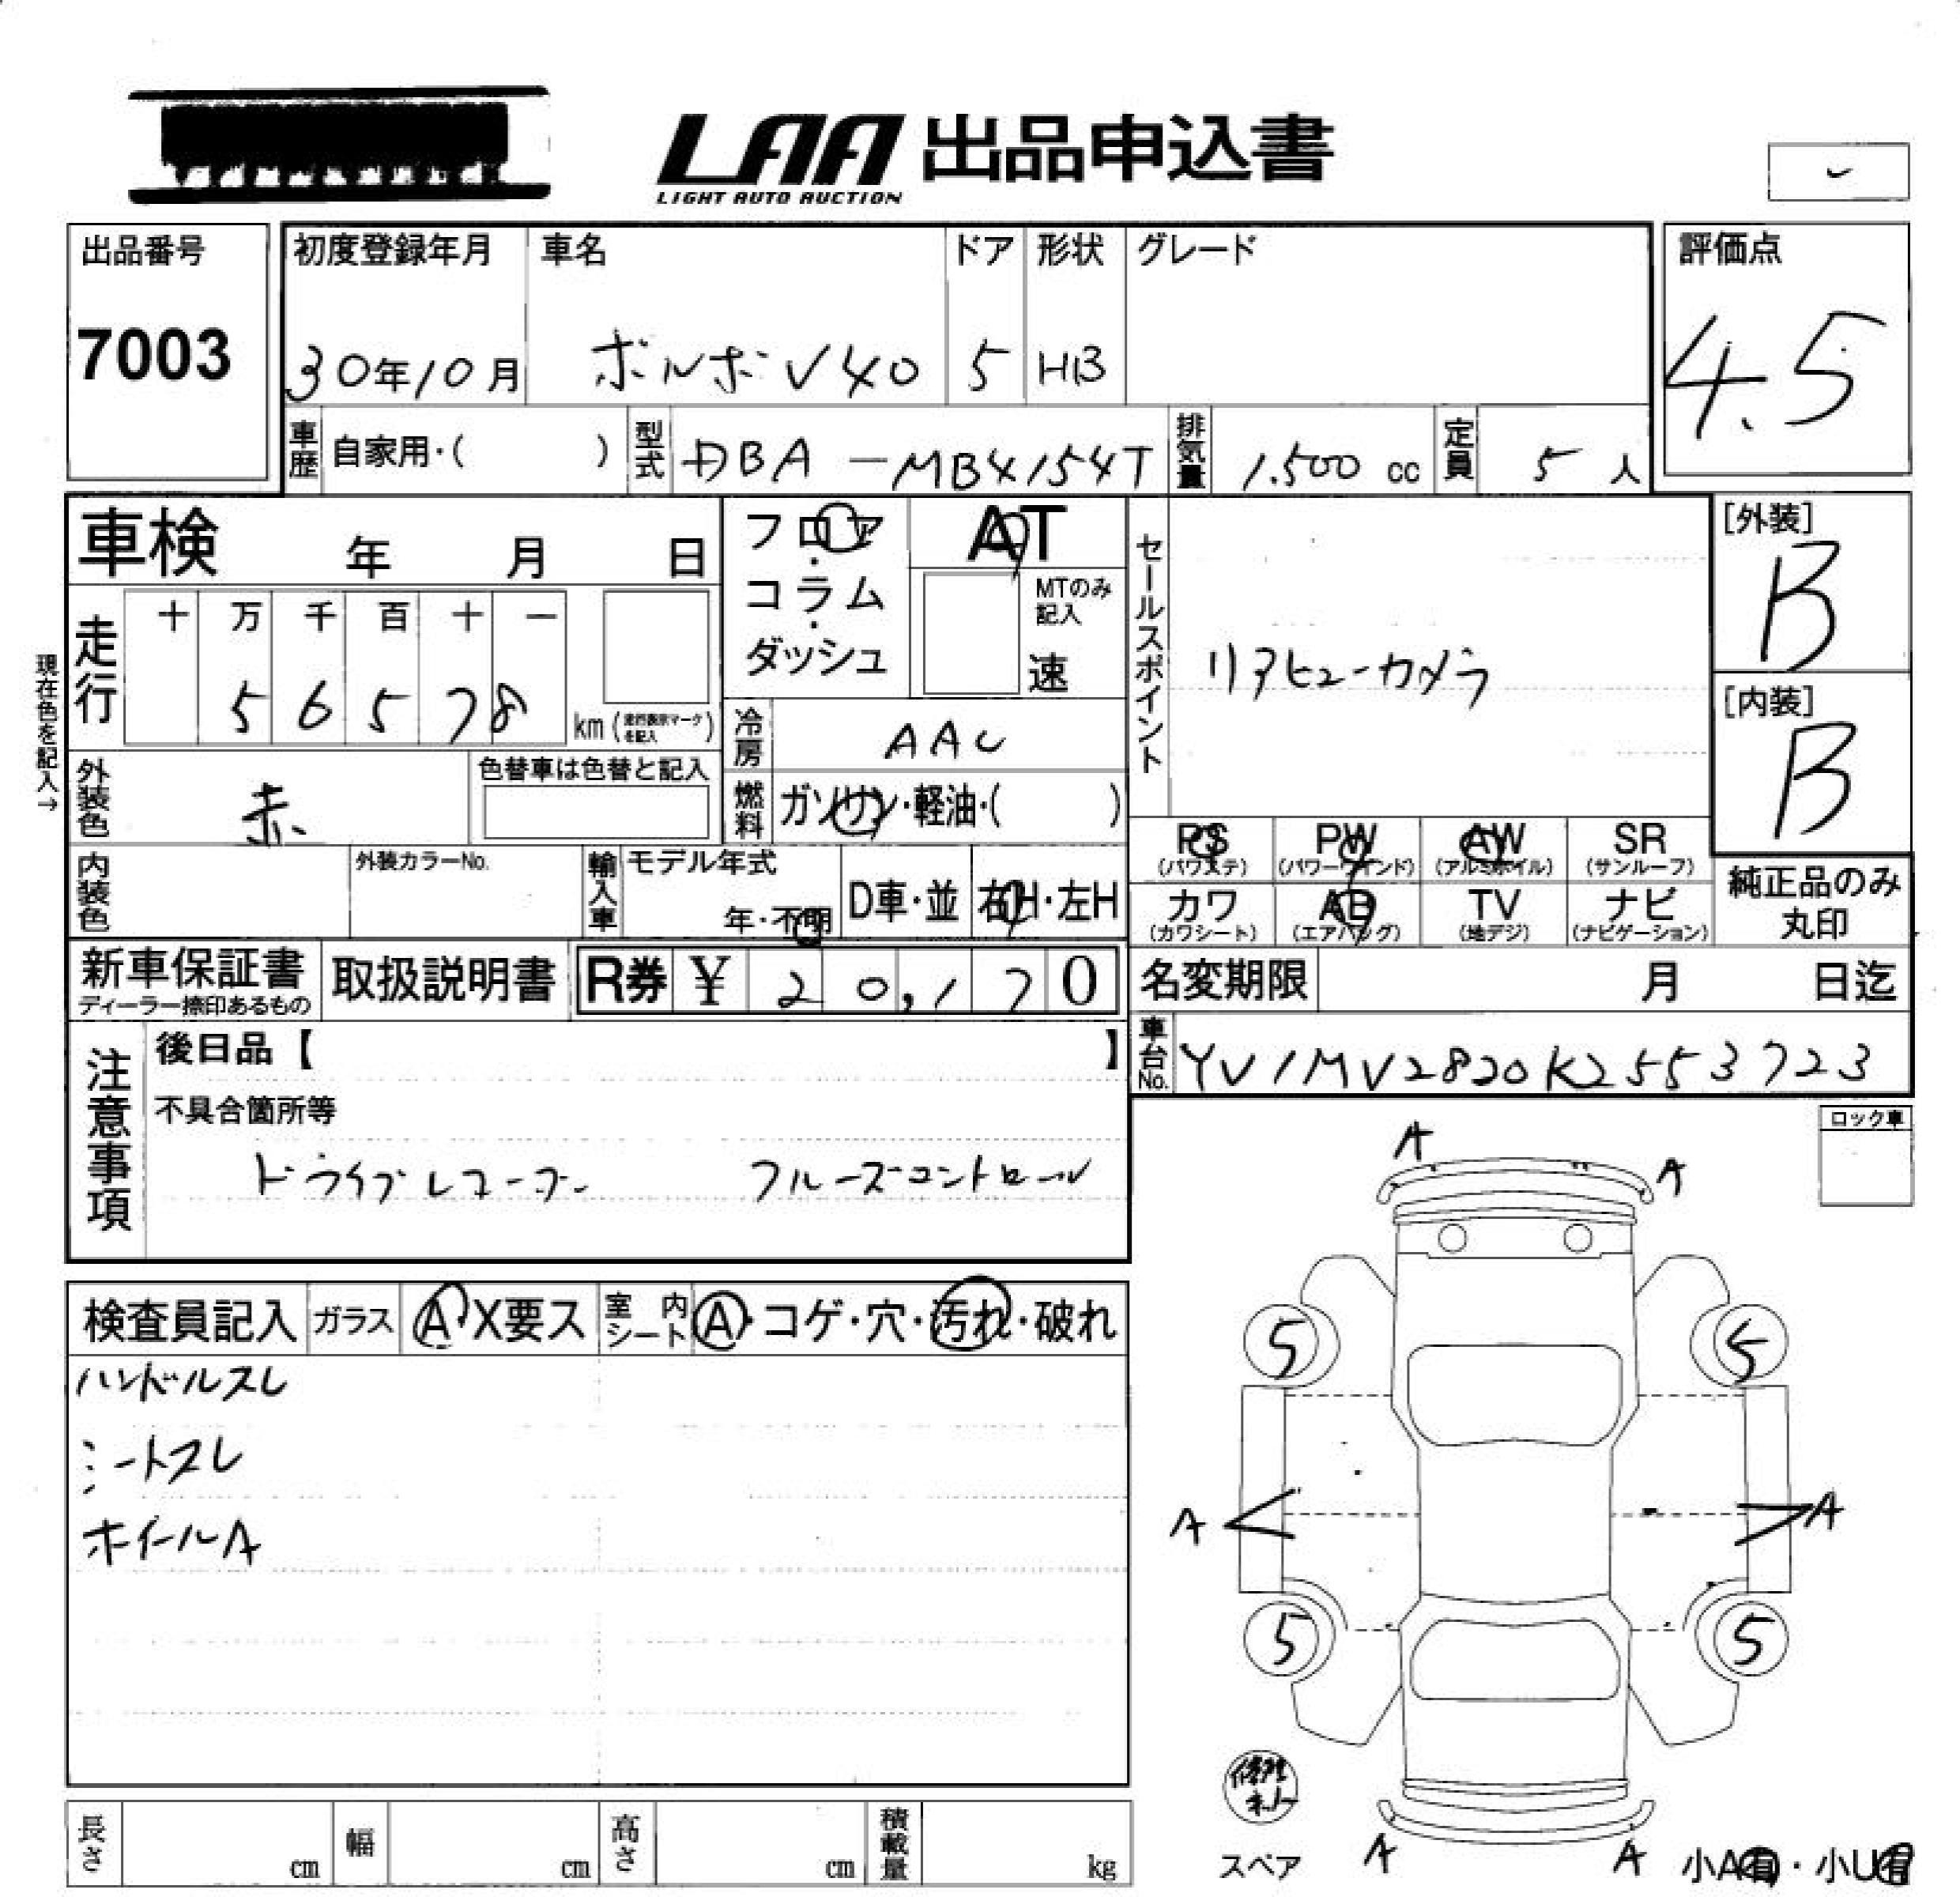 LAA 出品申込書
LIGHT AUTO AUCTION
出品番号
7003
初度登録年月
30年10月
車名
ボルボ V40
ドア
5
形状
HB
グレード
評価点
4.5
車歴 自家用・( )
型式 DBA-MB4154T
排気量 1.500 cc
定員 5 人
車検 年 月 日
フロア・コラム・ダッシュ
AT
MTのみ記入
速
セールスポイント
リアビューカメラ
[外装]
B
[内装]
B
現在色を記入→
走行
十 万 千 百 十 一
5 6 5 7 8
km (走行表示マークを記入)
冷房 AAC
外装色 赤
色替車は色替と記入
燃料 ガソリン・軽油・( )
PS (パワステ)
PW (パワーウインド)
AW (アルミホイル)
SR (サンルーフ)
カワ (カワシート)
AB (エアバッグ)
TV (地デジ)
ナビ (ナビゲーション)
純正品のみ丸印
内装色
外装カラーNo.
輸入車
モデル年式
年・不明
D車・並
右H・左H
新車保証書
ディーラー捺印あるもの
取扱説明書
R券 ¥ 20,170
名変期限 月 日迄
車台No. YV1MV2820K2553723
注意事項
後日品【 】
不具合箇所等
ドライブレコーダー クルーズコントロール
ロック車
検査員記入
ガラス A・X要ス
室内シート A・コゲ・穴・汚れ・破れ
ハンドルスレ
シートスレ
ホイールA
A
A
5
5
A
A
5
5
修理キット
スペア
A
A
小A有・小U有
長さ cm
幅 cm
高さ cm
積載量 kg